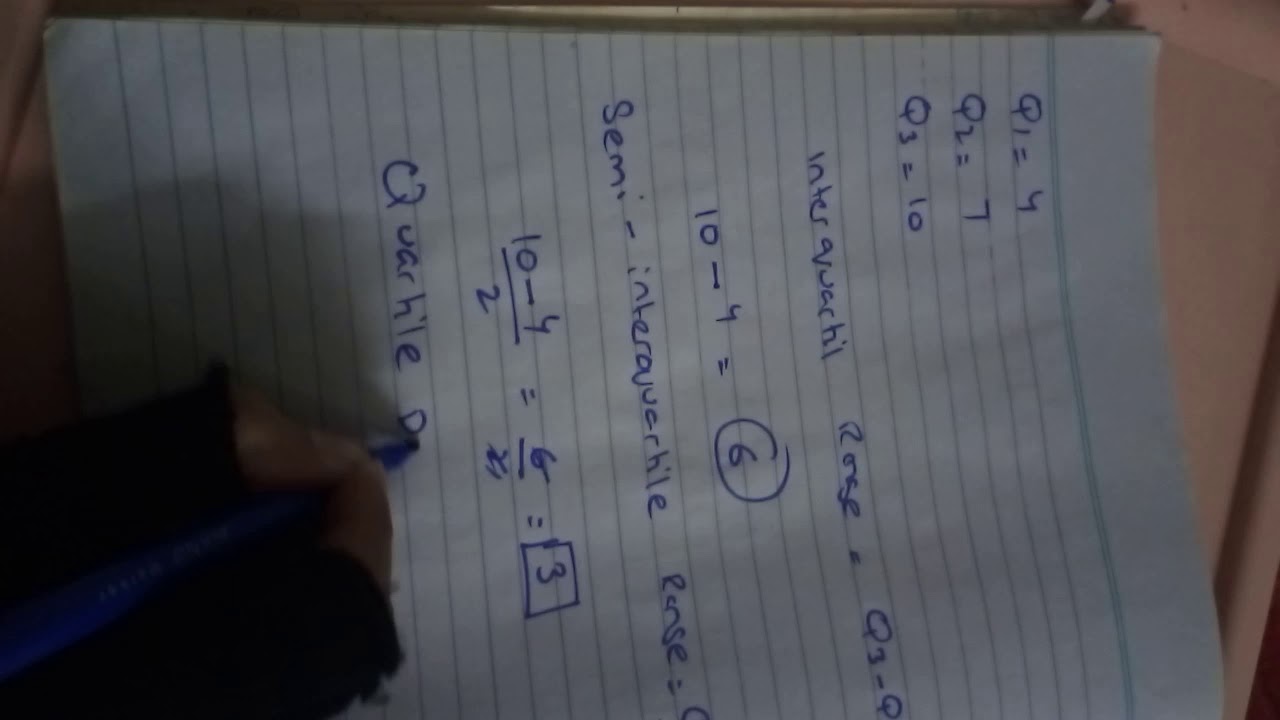 Q1 = 4
Q2 = 7
Q3 = 10
Interquartil Range = Q3 - Q
10 - 4 = 6
Semi - interquartile Range = (
10 - 4 / 2 = 6 / 2 = 3
Quartile D